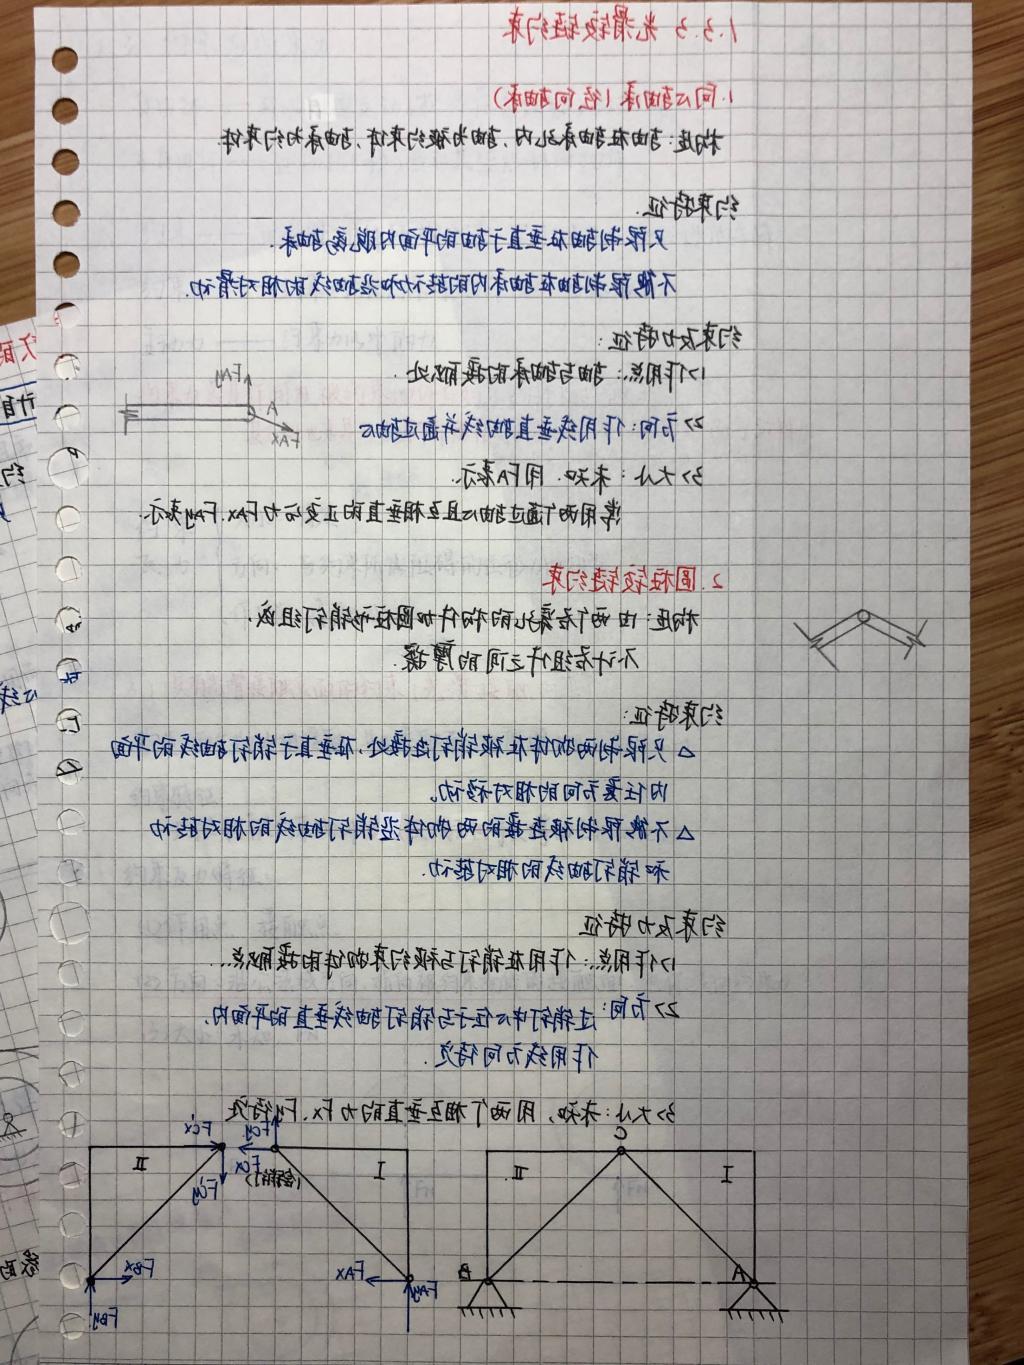 1.3.3 光滑铰链约束
1. 向心轴承(径向轴承)
构造:轴在轴承孔内,轴为被约束体,轴承为约束体.
约束特征.
只限制轴在垂直于轴的平面内脱离轴承.
不能限制轴在轴承内的转动和沿轴线的相对滑动.
约束反力特征:
1>作用点:轴与轴承的接触处.
FAy
A
FAX
2>方向:作用线垂直轴线并通过轴心
3>大小:未知.用FA表示.
常用两个通过轴心且互相垂直的正交分力FAX.FAy表示.
2.圆柱铰链约束
构造:由两个各穿孔的构件和圆柱形销钉组成.
不计各组件之间的摩擦.
约束特征:
△ 只限制两物体在被销钉连接处,在垂直于销钉轴线的平面
内任意方向的相对移动。
△ 不能限制被连接的两物体沿销钉轴线的相对转动
和销钉轴线的相对转动.
约束反力特征
1>作用点:作用在销钉与被约束物体的接触点.
2>方向:过销钉中心位于与销钉轴线垂直的平面内,
作用线方向待定.
3>大小:未知,用两个相互垂直的力Fx.Fy待定
C
I
II
A
B
FCy
FCX
(含销钉)
I
FAX
FAy
F'CX
F'Cy
II
FBX
FBy